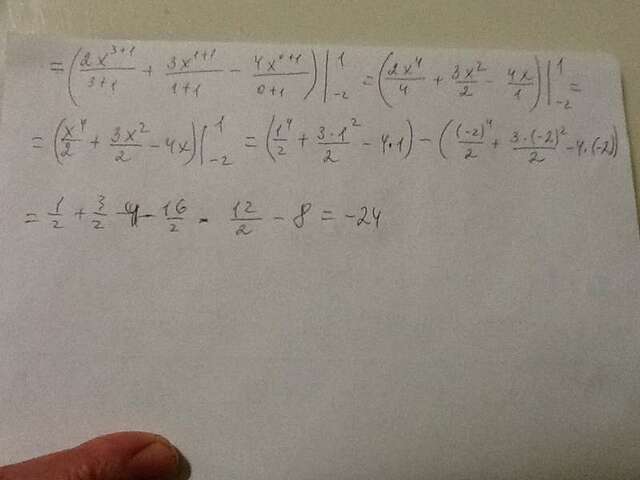 = (2x^{3+1}/3+1 + 3x^{1+1}/1+1 - 4x^{0+1}/0+1)|_{-2}^{1} = (2x^4/4 + 3x^2/2 - 4x/1)|_{-2}^{1} =
= (x^4/2 + 3x^2/2 - 4x)|_{-2}^{1} = (1^4/2 + 3·1^2/2 - 4·1) - ((-2)^4/2 + 3·(-2)^2/2 - 4·(-2))
= 1/2 + 3/2 - 4 - 16/2 - 12/2 - 8 = -24